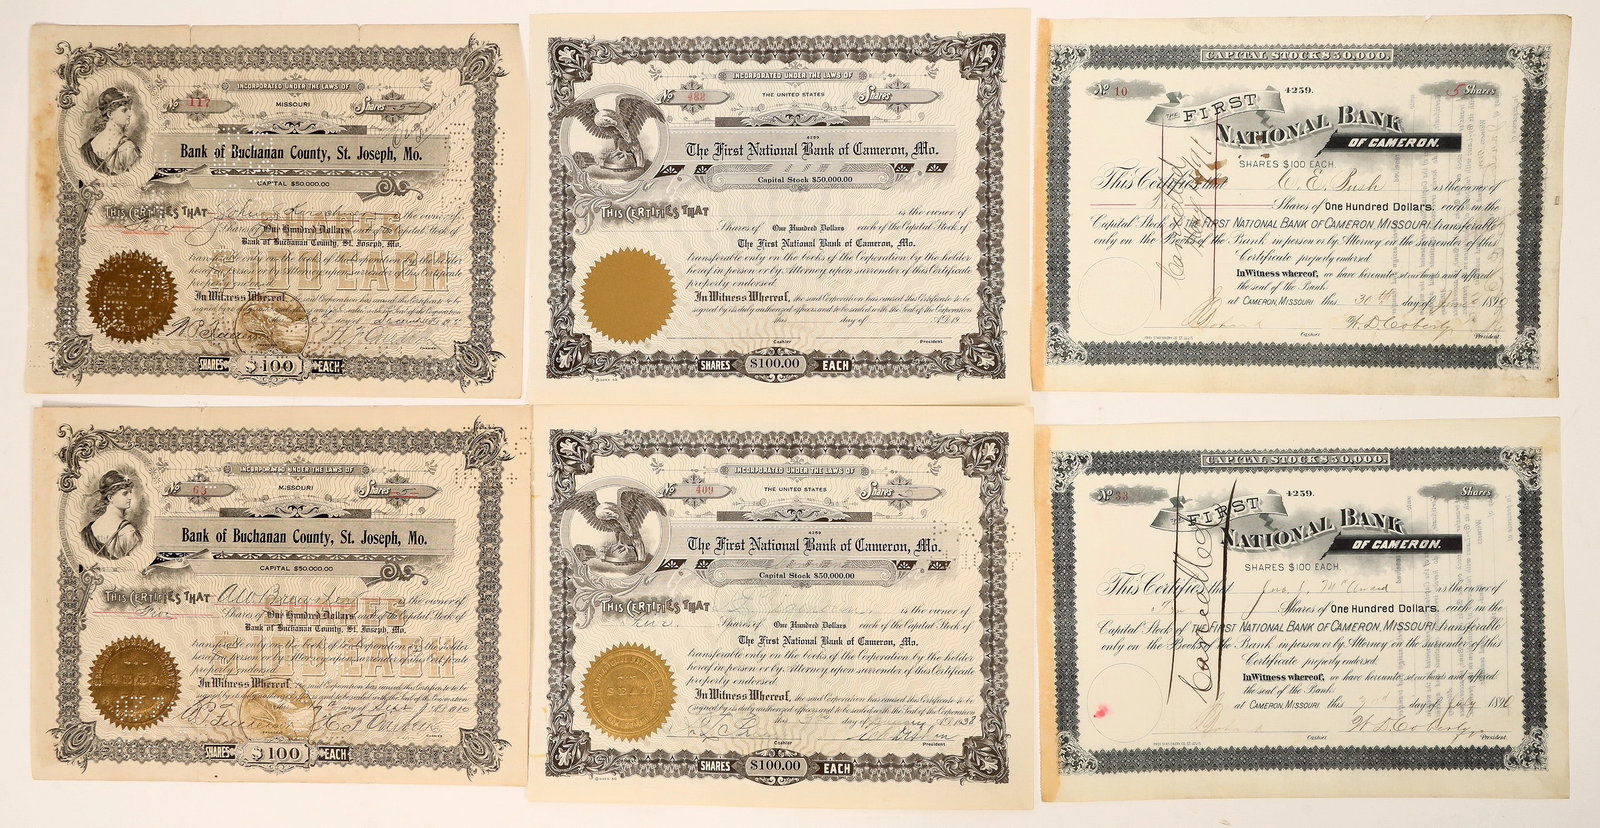 INCORPORATED UNDER THE LAWS OF
No 117
MISSOURI
Shares 54
Bank of Buchanan County, St. Joseph, Mo.
CAPITAL $50,000.00
THIS CERTIFIES THAT
is the owner of
Shares of One Hundred Dollars each of the Capital Stock of
Bank of Buchanan County, St. Joseph, Mo.
transferable only on the books of the Corporation by the holder
hereof in person or by Attorney upon surrender of this Certificate
properly endorsed.
In Witness Whereof, the said Corporation has caused this Certificate to be
signed by its duly authorized officers and to be sealed with the Seal of the Corporation
SHARES $100 EACH
INCORPORATED UNDER THE LAWS OF
No 488
THE UNITED STATES
Shares
4259
The First National Bank of Cameron, Mo.
Capital Stock $50,000.00
THIS CERTIFIES THAT
is the owner of
Shares of One Hundred Dollars each of the Capital Stock of
The First National Bank of Cameron, Mo.
transferable only on the books of the Corporation by the holder
hereof in person or by Attorney upon surrender of this Certificate
properly endorsed.
In Witness Whereof, the said Corporation has caused this Certificate to be
signed by its duly authorized officers and to be sealed with the Seal of the Corporation
this day of A.D. 19
Cashier President
SHARES $100.00 EACH
CAPITAL STOCK $50,000.
No 10
4259.
5 Shares
THE FIRST NATIONAL BANK OF CAMERON.
SHARES $100 EACH.
This Certifies that C. E. Bush is the owner of
Shares of One Hundred Dollars, each in the
Capital Stock of THE FIRST NATIONAL BANK OF CAMERON, MISSOURI transferable
only on the Books of the Bank in person or by Attorney on the surrender of this
Certificate properly endorsed.
In Witness whereof, we have hereunto set our hands and affixed
the seal of the Bank
at CAMERON, MISSOURI this 30th day of June 1890
Cashier President
INCORPORATED UNDER THE LAWS OF
No 63
MISSOURI
Shares 5
Bank of Buchanan County, St. Joseph, Mo.
CAPITAL $50,000.00
THIS CERTIFIES THAT
is the owner of
Five Shares of One Hundred Dollars each of the Capital Stock of
Bank of Buchanan County, St. Joseph, Mo.
transferable only on the books of the Corporation by the holder
hereof in person or by Attorney upon surrender of this Certificate
properly endorsed.
In Witness Whereof, the said Corporation has caused this Certificate to be
signed by its duly authorized officers and to be sealed with the Seal of the Corporation
SHARES $100 EACH
INCORPORATED UNDER THE LAWS OF
No 409
THE UNITED STATES
Shares 5
4259
The First National Bank of Cameron, Mo.
Capital Stock $50,000.00
THIS CERTIFIES THAT
is the owner of
Five Shares of One Hundred Dollars each of the Capital Stock of
The First National Bank of Cameron, Mo.
transferable only on the books of the Corporation by the holder
hereof in person or by Attorney upon surrender of this Certificate
properly endorsed.
In Witness Whereof, the said Corporation has caused this Certificate to be
signed by its duly authorized officers and to be sealed with the Seal of the Corporation
this day of January A.D. 1938
Cashier President
SHARES $100.00 EACH
CAPITAL STOCK $50,000.
No 33
4259.
Shares
THE FIRST NATIONAL BANK OF CAMERON.
SHARES $100 EACH.
Cancelled
This Certifies that is the owner of
Shares of One Hundred Dollars, each in the
Capital Stock of THE FIRST NATIONAL BANK OF CAMERON, MISSOURI transferable
only on the Books of the Bank in person or by Attorney on the surrender of this
Certificate properly endorsed.
In Witness whereof, we have hereunto set our hands and affixed
the seal of the Bank
at CAMERON, MISSOURI this 7 day of July 1890
Cashier President